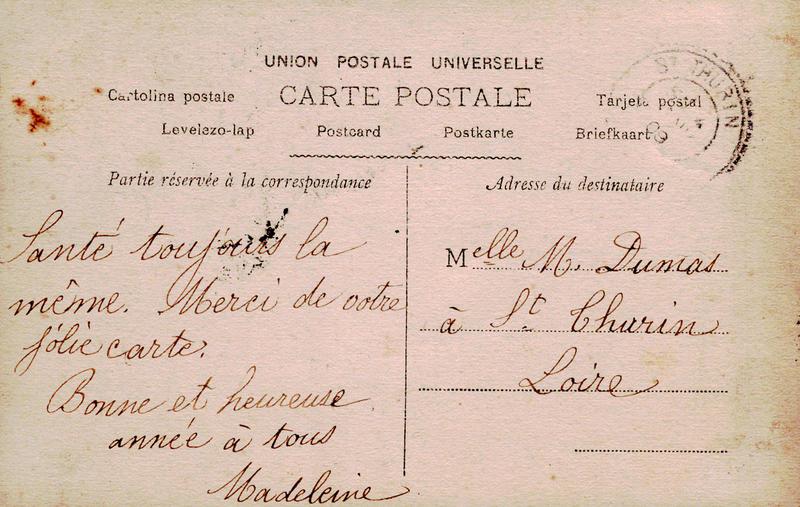 UNION POSTALE UNIVERSELLE
Cartolina postale
CARTE POSTALE
Tarjeta postal
Levelezo-lap
Postcard
Postkarte
Briefkaart
ST THURIN
09
Partie réservée à la correspondance
Santé toujours la
même. Merci de votre
jolie carte.
Bonne et heureuse
année à tous
Madeleine
Adresse du destinataire
Melle M. Dumas
à St Thurin
Loire